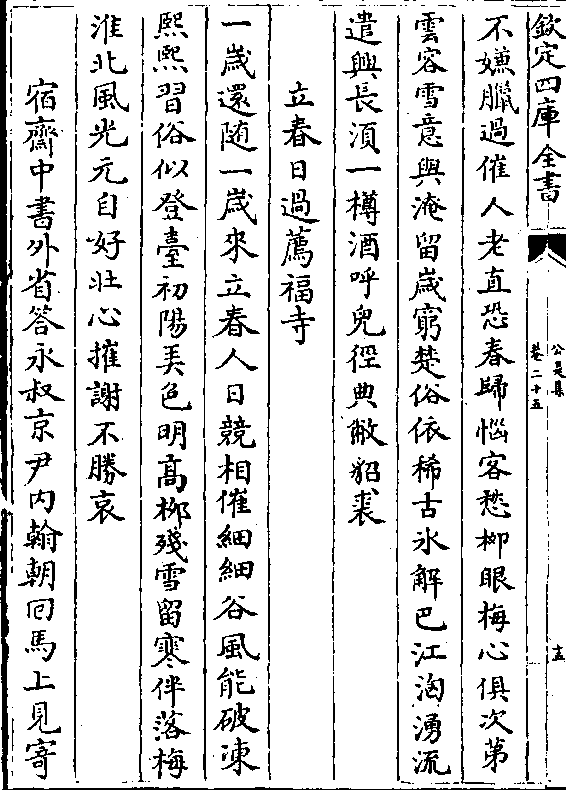 欽定四庫全書
公是集
卷二十五
十五
不嫌臘過催人老直恐春歸惱客愁柳眼梅心俱次第
雲容雪意與淹留歲窮楚俗依稀古氷解巴江洶湧流
遣興長須一樽酒呼兒徑典敝貂裘
立春日過薦福寺
一歲還随一歲來立春人日競相催細細谷風能破凍
熙熙習俗似登臺初陽美色明髙栁殘雪留寒伴落梅
淮北風光元自好壯心摧謝不勝哀
宿齋中書外省答永叔京尹内翰朝回馬上見寄